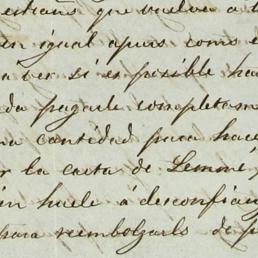 que vuelva a
en igual apuro como
a ver si es posible ha
da pagarle completam
a cantidad para hace
r la carta de Lemmé,
ín huele á desconfian
para reembolzarlo de p